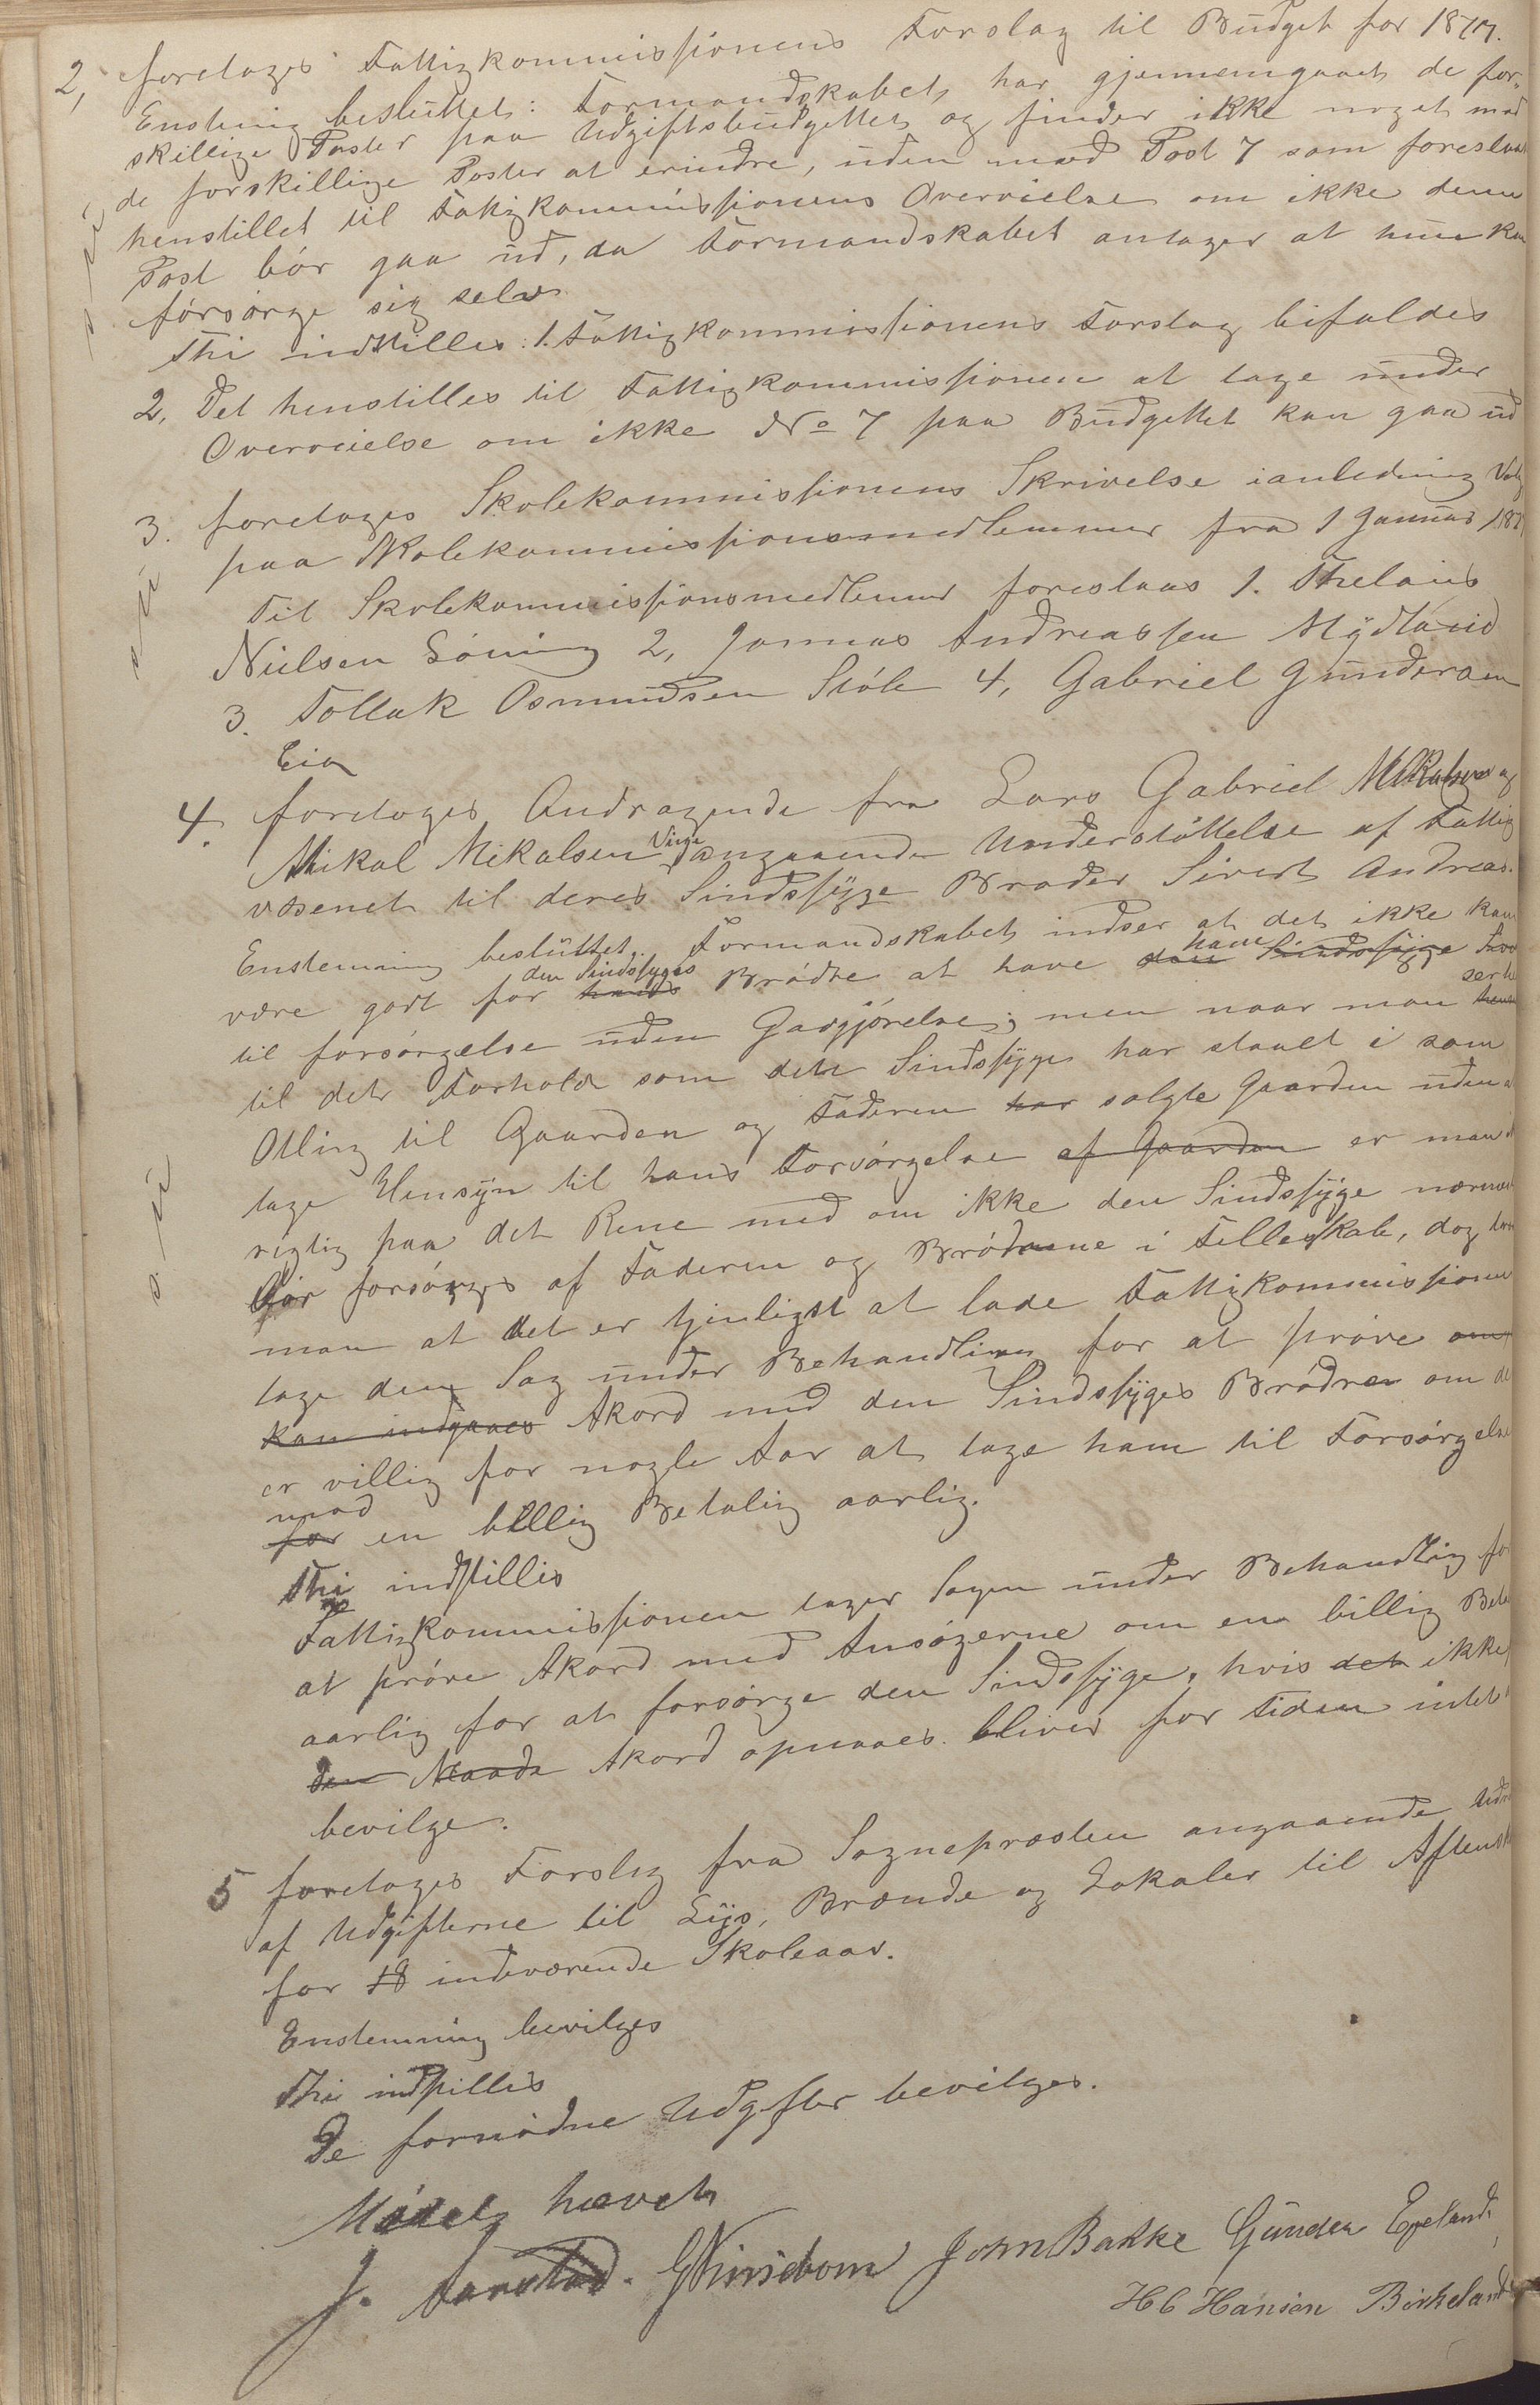 2, foretoges Fattigkommissionens Forslag til Budget for 1877.
Enstemig besluttet: Formandskabet har gjennemgaaet de for-
skillige Poster paa Udgiftsbudgettet og finder ikke noget mod
de forskillige Poster at erindre, uden mod Post 7 som foreslaaes
henstillet til Fattigkommissionens Overveielse om ikke denne
Post bör gaa ud, da Formandskabet antager at hun kan
försörge sig selv.
Thi indstilles: 1. Fattigkommissionens Forslag bifaldes
2. Det henstilles til Fattigkommissionen at tage under
Overveielse om ikke No 7 paa Budgettet kan gaa ud
3. foretoges Skolekommissionens Skrivelse ianledning Valg
paa Skolekommissionsmedlemmer fra 1 Januar 187
Til Skolekommissionsmedlemmer foreslaaes 1. Thelaus
Nielsen Löning 2, Jonnas Andreassen Mydland
3. Tollak Osmundsen Stöle 4, Gabriel Gundersen
Eia
4. foretoges Andragende fra Lars Gabriel Mikalsen og
Mikal Mikalsen Vinje angaaende Understöttelse af Fattig
væsenet til deres Sindssyge Broder Sivert Andreas.
Enstemmig besluttet. Formandskabet indser at det ikke kan
være godt for den Sindssyges Brödre at have ham
til forsörgelse uden Godgjörelse; men naar man ser hen
til det Forhold som den Sindssyge har staaet i som
Otling til Gaarden og Faderen solgte Gaarden uden at
tage Hensyn til hans Forsörgelse af Gaarden er man i
rigtig paa det Rene med om ikke den Sindssyge nærmest
bör forsörges af Faderen og Brödrene i Felleskab, dog tror
man at det er tjenligst at lade Fattigkommissionen
tage den Sag under Behandling for at pröve om
kan indgaaes Akord med den Sindssyges Brödre om de
er villig for nogle Aar at tage ham til Forsörgelse
mod
for en billig Betaling aarlig.
Thi indstilles
Fattigkommissionen tager Sagen under Behandling for
at pröve Akord med Ansögerne om en billig Beta
aarlig for at forsörge den Sindssyge, hvis det ikke
den Maade Akord opnaaes bliver for tiden intet
bevilge.
5 foretoges Forslag fra Sognepresten angaaende Udre
af Udgifterne til Lys, Brænde og Lokaler til Aftensk
for 18 indeværende Skoleaar.
Enstemmig bevilges
Thi indstilles
De fornödne Udgifter bevilges.
Mödet hævet
J. Aarstad. John Bakke Gunder Egeland
H C Hansen Birkeland